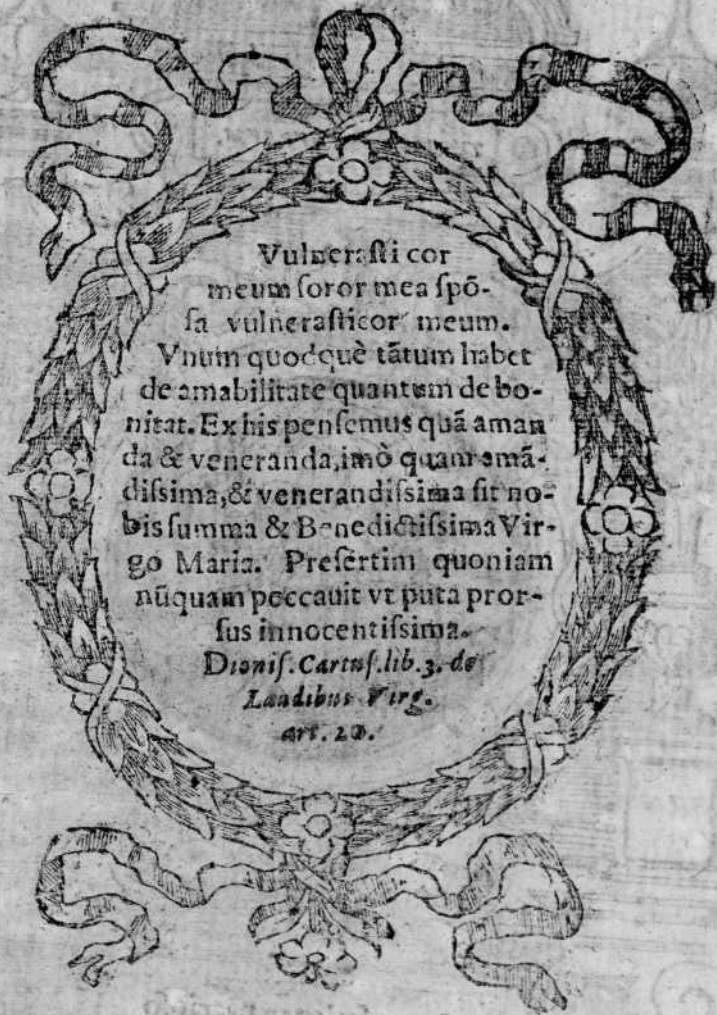 Vulnerasti cor
meum soror mea spõ-
sa vulnerasticor meum.
Vnum quodquè tãtum habet
de amabilitate quantum de bo-
nitat. Ex his pensemus quã aman
da & veneranda, imò quam amã-
dissima, & venerandissima sit no-
bis summa & Benedictissima Vir-
go Maria. Presertim quoniam
nũquam peccauit vt puta pror-
sus innocentissima.
Dionis. Cartus. lib. 3. de
Laudibus Virg.
art.